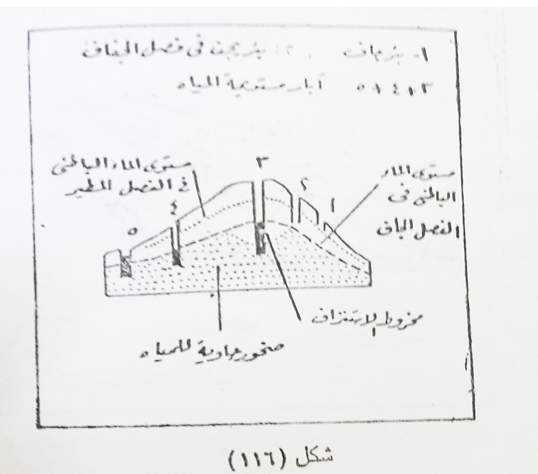 ١- بئر جاف ٢- بئر يجف فى فصل الجفاف
٣، ٤، ٥ آبار مستديمة المياه
مستوى الماء الباطنى
فى الفصل المطير
٣
٢
١
٤
٥
مستوى الماء
الباطنى فى
الفصل الجاف
مخروط الاستنزاف
صخور حاوية للمياه
شكل (١١٦)